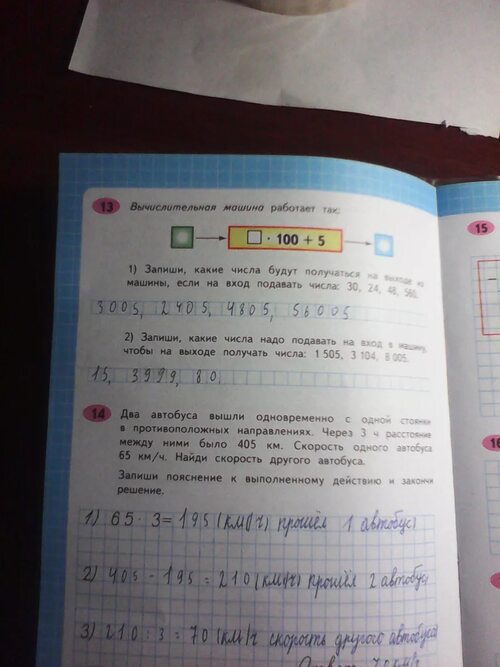 13 Вычислительная машина работает так:
□ · 100 + 5
1) Запиши, какие числа будут получаться на выходе из
машины, если на вход подавать числа: 30, 24, 48, 560.
3005, 2405, 4805, 56005
2) Запиши, какие числа надо подавать на вход в машину,
чтобы на выходе получать числа: 1 505, 3 104, 8 005.
15, 3999, 80.
14 Два автобуса вышли одновременно с одной стоянки
в противоположных направлениях. Через 3 ч расстояние
между ними было 405 км. Скорость одного автобуса
65 км/ч. Найди скорость другого автобуса.
Запиши пояснение к выполненному действию и закончи
решение.
1) 65 · 3 = 195 (км/ч) прошёл 1 автобус)
2) 405 - 195 = 210 (км/ч) прошёл 2 автобус
3) 210 : 3 = 70 (км/ч скорость другого автобуса)
70 км/ч
15
16